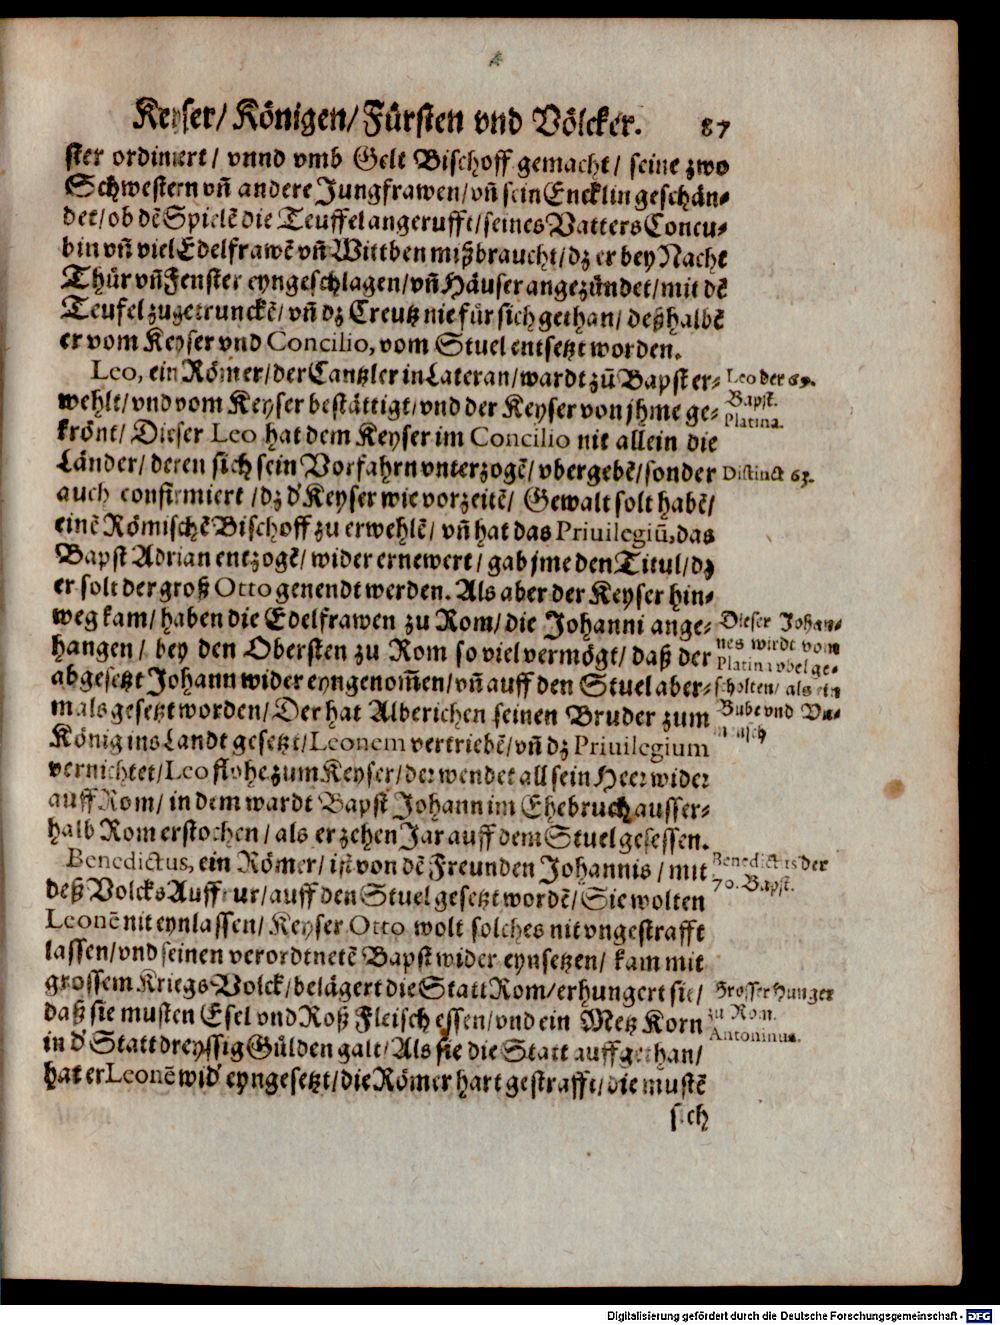 Keyser/ Königen/ Fürsten vnd Völcker. 87
ster ordiniert/ vnnd vmb Gelt Bischoff gemacht/ seine zwo
Schwestern vñ andere Jungfrawen/ vñ sein Encklin geschän-
det/ ob dẽ Spielẽ die Teuffel angerufft/ seines Vatters Concu-
bin vñ viel Edelfrawẽ vñ Wittben mißbraucht/ dz er bey Nacht
Thür vñ Fenster eyngeschlagen/ vñ Häuser angezündet/ mit dẽ
Teufel zugetrunckẽ/ vñ dz Creutz nie für sich gethan/ deßhalbẽ
er vom Keyser vnd Concilio, vom Stuel entsetzt worden.
Leo, ein Römer/ der Cantzler in Lateran/ wardt zũ Bapst er-
Leo der 69.
Bapst.
Platina.
wehlt/ vnd vom Keyser bestättigt/ vnd der Keyser von jhme ge-
krönt/ Dieser Leo hat dem Keyser im Concilio nit allein die
Länder/ deren sich sein Vorfahrn vnterzogẽ/ vbergebẽ/ sonder
Distinct 63.
auch confirmiert/ dz d' Keyser wie vorzeitẽ/ Gewalt solt habẽ/
einẽ Römischẽ Bischoff zu erwehlẽ/ vñ hat das Priuilegiũ, das
Bapst Adrian entzogẽ/ wider ernewert/ gab jme den Titul/ dz
er solt der groß Otto genendt werden. Als aber der Keyser hin-
weg kam/ haben die Edelfrawen zu Rom/ die Johanni ange-
Dieser Johan-
nes wirdt vom
Platina vbel ge-
scholten/ als ein
Bube vnd
hangen/ bey den Obersten zu Rom so viel vermögt/ daß der
abgesetzt Johann wider eyngenom̃en/ vñ auff den Stuel aber-
mals gesetzt worden/ Der hat Alberichen seinen Bruder zum
König ins Landt gesetzt/ Leonem vertriebẽ/ vñ dz Priuilegium
vernichtet/ Leo flohe zum Keyser/ der wendet all sein Heer wider
auff Rom/ in dem wardt Bapst Johann im Ehebruch ausser-
halb Rom erstochen/ als er zehen Jar auff dem Stuel gesessen.
Benedictus, ein Römer/ ist von dẽ Freunden Johannis/ mit
Benedictus der
70. Bapst.
deß Volcks Auffrur/ auff den Stuel gesetzt wordẽ/ Sie wolten
Leonẽ nit eynlassen/ Keyser Otto wolt solches nit vngestrafft
lassen/ vnd seinen verordtnetẽ Bapst wider eynsetzen/ kam mit
grossem Kriegs Volck/ belägert die Statt Rom/ erhungert sie/
Grosser Hunger
zu Rom.
Antoninus.
daß sie musten Esel vnd Roß Fleisch essen/ vnd ein Metz Korn
in d' Statt dreyssig Gülden galt/ Als sie die Statt auffgethan/
hat er Leonẽ wid' eyngesetzt/ die Römer hart gestrafft/ die mustẽ
sich
Digitalisierung gefördert durch die Deutsche Forschungsgemeinschaft - DFG